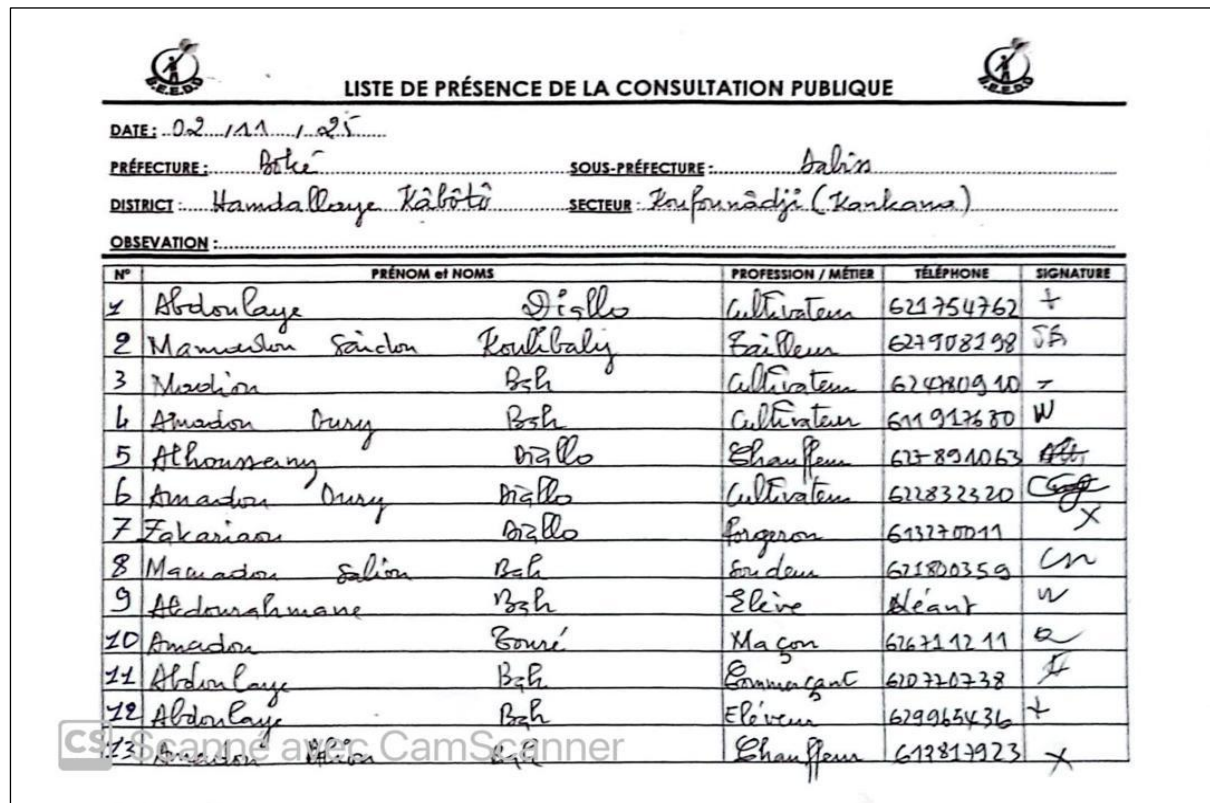 B.E.E.D.D
B.E.E.D.D
LISTE DE PRÉSENCE DE LA CONSULTATION PUBLIQUE
DATE : 02 / 11 / 25
PRÉFECTURE : Boké SOUS-PRÉFECTURE : Dabiss
DISTRICT : Hamdallaye Kâbôtô SECTEUR : Koufounâdji (Kankana)
OBSEVATION :
N° PRÉNOM et NOMS PROFESSION / MÉTIER TÉLÉPHONE SIGNATURE
1 Abdoulaye Diallo Cultivateur 621754762 +
2 Mamadou Saïdou Koulibaly Tailleur 627908198
3 Bah Cultivateur
4 Amadou Oury Bah Cultivateur 611917680
5 Alhousseiny Diallo Chauffeur 627891063
6 Amadou Oury Diallo Cultivateur 622832320
7 Zakariaou Diallo Forgeron 613270011 X
8 Mamadou Saliou Bah Soudeur 621800359
9 Abdourahmane Bah Elève Néant
10 Amadou Touré Maçon 626711211
11 Abdoulaye Bah Commerçant 610770738
12 Abdoulaye Bah Eléveur 629965436 +
13 Amadou Bah Chauffeur 613817923 X
CS Scanné avec CamScanner